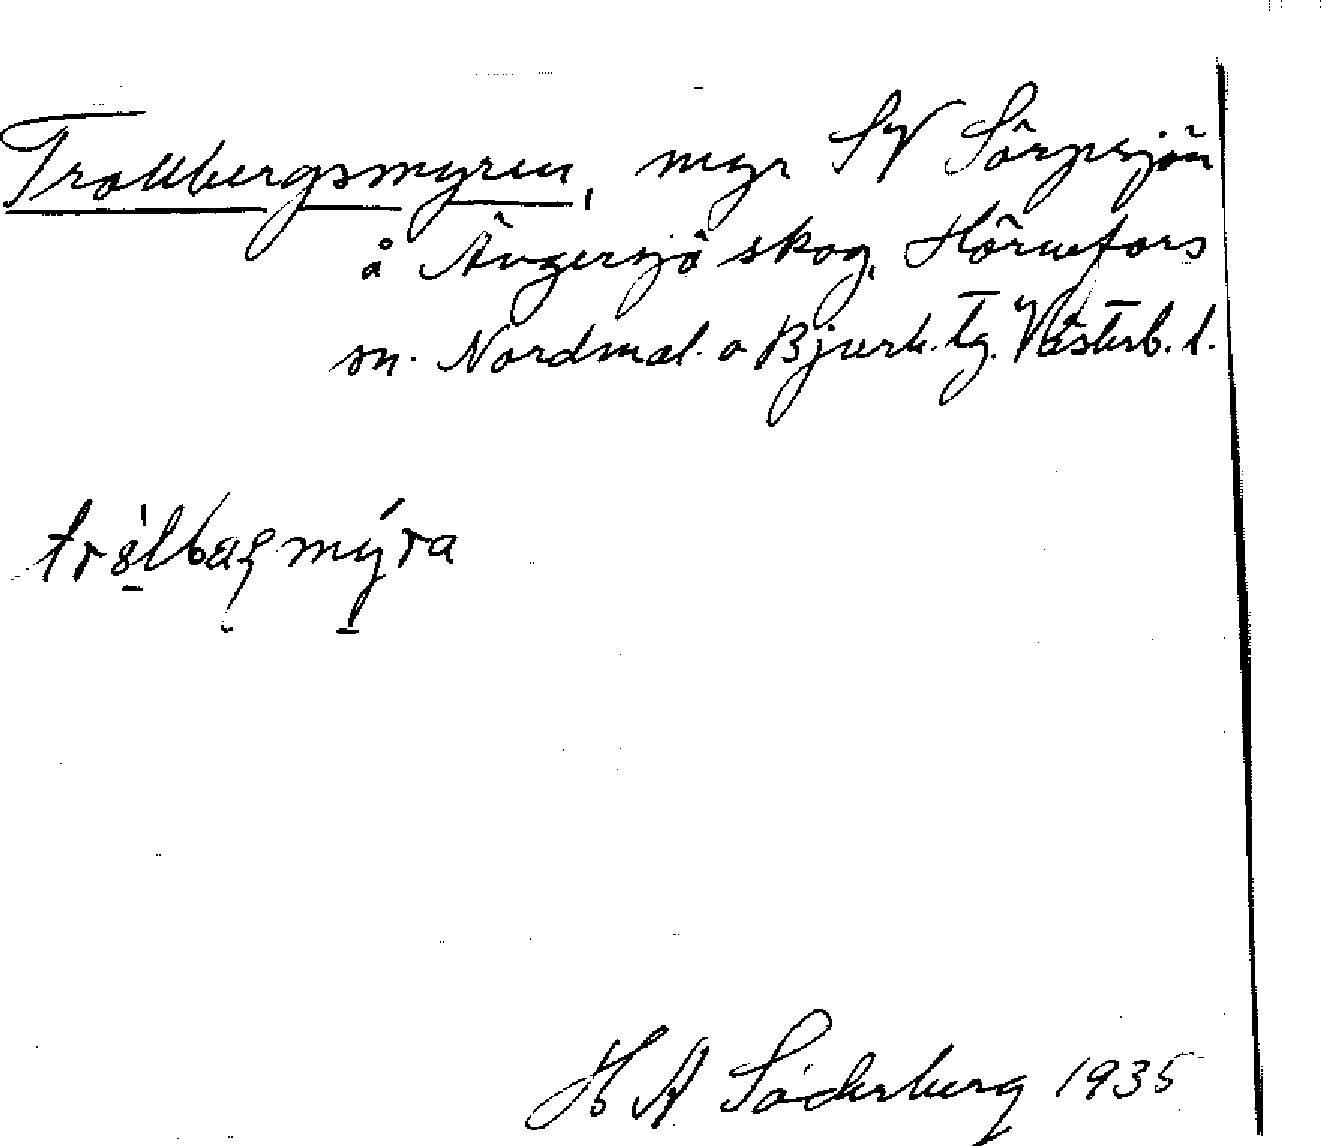 Trollbergsmyren, myr SV Sörpsjön
å Ängersjö skog, Hörnefors
sn. Nordmal. o Bjurh. tg. Västerb. l.
H A Söderberg 1935